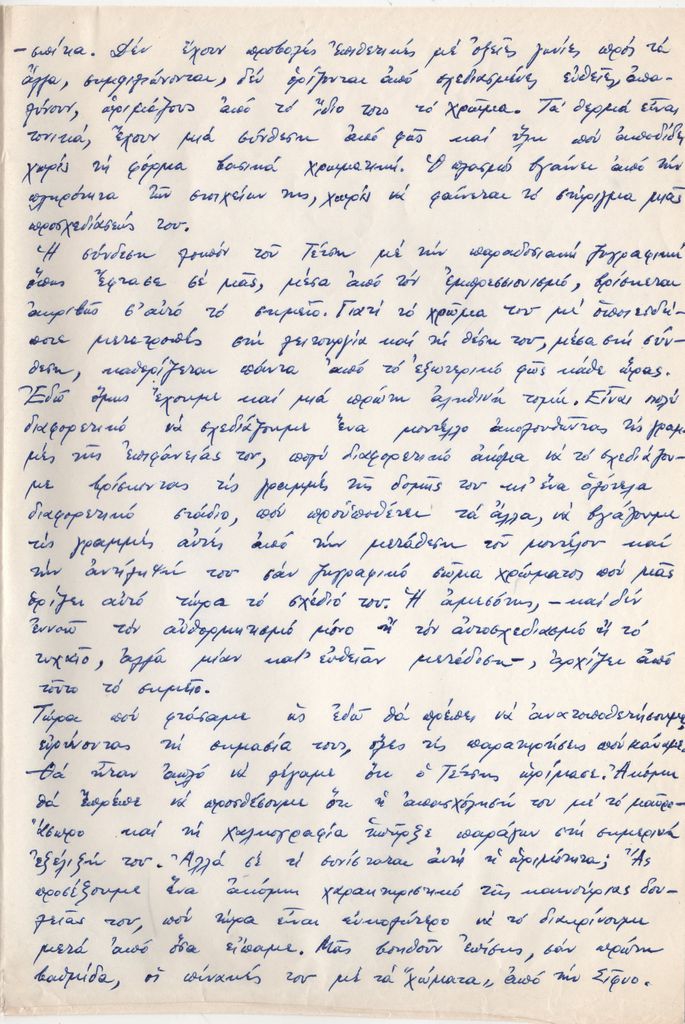 -σπίτια. Δέν ἔχουν προβολές ἐπιθετικές μέ ὀξεῖες γωνίες πρός τά
ἄλλα, συμφιλιώνονται, δέν ὁρίζονται ἀπό σχεδιασμένες εὐθεῖες, ἁπα-
λύνουν, ὡριμάζουν ἀπό τό ἴδιο τους τό χρῶμα. Τά θερμά εἶναι
τονικά, ἔχουν μιά σύνθεση ἀπό φῶς καί ὕλη πού ἀποδίδει
χωρίς τή φόρμα βασικά χρωματική. Ὁ πλασμός βγαίνει ἀπό τήν
πληρότητα τῶν στοιχείων της, χωρίς νά φαίνεται τό στήριγμα μιᾶς
προσχεδίασής του.
Ἡ σύνδεση λοιπόν τοῦ Τέτση μέ τήν παραδοσιακή ζωγραφική
ὅπως ἔφτασε σέ μᾶς, μέσα ἀπό τόν ἐμπρεσσιονισμό, βρίσκεται
ἀκριβῶς σ' αὐτό τό σημεῖο. Γιατί τό χρῶμα του μέ ὁποιεσδή-
ποτε μετατροπές στή λειτουργία καί τή θέση του, μέσα στή σύν-
θεση, καθορίζεται πάντα ἀπό τό ἐξωτερικό φῶς κάθε ὥρας.
Ἐδῶ ὅμως ἔχουμε καί μιά πρώτη ἀληθινή τομή. Εἶναι πολύ
διαφορετικό νά σχεδιάζουμε ἕνα μοντέλο ἀκολουθῶντας τίς γραμ-
μές τῆς ἐπιφάνειάς του, πολύ διαφορετικό ἀκόμα νά τό σχεδιάζου-
με βρίσκοντας τίς γραμμές τῆς δομῆς του κι' ἕνα ὁλότελα
διαφορετικό στάδιο, πού προϋποθέτει τά ἄλλα, νά βγάζουμε
τίς γραμμές αὐτές ἀπό τήν μετάθεση τοῦ μοντέλου καί
τήν ἀντίληψή του σάν ζωγραφικό σῶμα χρώματος πού μᾶς
ὁρίζει αὐτό τώρα τό σχέδιό του. Ἡ ἀμεσότης, -καί δέν
ἐννοῶ τόν αὐθορμητισμό μόνο ἤ τόν αὐτοσχεδιασμό ἤ τό
τυχαῖο, ἀλλά μίαν κατ' εὐθεῖαν μετάδοση-, ἀρχίζει ἀπό
τοῦτο τό σημεῖο.
Τώρα πού φτάσαμε ὡς ἐδῶ θά πρέπει νά ἀνατοποθετήσουμε
εὑρύνοντας τή σημασία τους, ὅλες τίς παρατηρήσεις πού κάναμε.
Θά ἦταν ἁπλό νά λέγαμε ὅτι ὁ Τέτσης ὡρίμασε. Ἀκόμη
θά ἔπρεπε νά προσθέσουμε ὅτι ἡ ἀπασχόλησή του μέ τό μαῦρο-
ἄσπρο καί τή χαλκογραφία ὑπῆρξε παράγων στή σημερινή
ἐξέλιξή του. Ἀλλά σέ τί συνίσταται αὐτή ἡ ὡριμότητα; Ἄς
προσέξουμε ἕνα ἀκόμη χαρακτηριστικό τῆς καινούριας δου-
λειᾶς του, πού τώρα εἶναι εὐκολώτερο νά τό διακρίνουμε
μετά ἀπό ὅσα εἴπαμε. Μᾶς βοηθοῦν ἐπίσης, σάν πρώτη
βαθμίδα, οἱ πίνακές του μέ τά "χώματα,, ἀπό τήν Σίφνο.